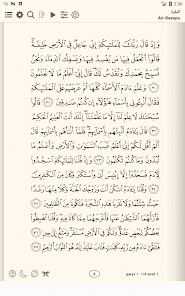 2:36
البقرة
Al-Baqara
وَإِذْ قَالَ رَبُّكَ لِلْمَلَٰٓئِكَةِ إِنِّي جَاعِلٌ فِي ٱلْأَرْضِ خَلِيفَةً
قَالُوٓا۟ أَتَجْعَلُ فِيهَا مَن يُفْسِدُ فِيهَا وَيَسْفِكُ ٱلدِّمَآءَ وَنَحْنُ
نُسَبِّحُ بِحَمْدِكَ وَنُقَدِّسُ لَكَ قَالَ إِنِّيٓ أَعْلَمُ مَا لَا تَعْلَمُونَ
٣٠ وَعَلَّمَ ءَادَمَ ٱلْأَسْمَآءَ كُلَّهَا ثُمَّ عَرَضَهُمْ عَلَى ٱلْمَلَٰٓئِكَةِ
فَقَالَ أَنۢبِـُٔونِي بِأَسْمَآءِ هَٰٓؤُلَآءِ إِن كُنتُمْ صَٰدِقِينَ ٣١ قَالُوا۟
سُبْحَٰنَكَ لَا عِلْمَ لَنَآ إِلَّا مَا عَلَّمْتَنَآ إِنَّكَ أَنتَ ٱلْعَلِيمُ ٱلْحَكِيمُ
٣٢ قَالَ يَٰٓـَٔادَمُ أَنۢبِئْهُم بِأَسْمَآئِهِمْ فَلَمَّآ أَنۢبَأَهُم بِأَسْمَآئِهِمْ قَالَ
أَلَمْ أَقُل لَّكُمْ إِنِّيٓ أَعْلَمُ غَيْبَ ٱلسَّمَٰوَٰتِ وَٱلْأَرْضِ وَأَعْلَمُ مَا
تُبْدُونَ وَمَا كُنتُمْ تَكْتُمُونَ ٣٣ وَإِذْ قُلْنَا لِلْمَلَٰٓئِكَةِ ٱسْجُدُوا۟
لِـَٔادَمَ فَسَجَدُوٓا۟ إِلَّآ إِبْلِيسَ أَبَىٰ وَٱسْتَكْبَرَ وَكَانَ مِنَ ٱلْكَٰفِرِينَ
٣٤ وَقُلْنَا يَٰٓـَٔادَمُ ٱسْكُنْ أَنتَ وَزَوْجُكَ ٱلْجَنَّةَ وَكُلَا مِنْهَا رَغَدًا
حَيْثُ شِئْتُمَا وَلَا تَقْرَبَا هَٰذِهِ ٱلشَّجَرَةَ فَتَكُونَا مِنَ ٱلظَّٰلِمِينَ ٣٥
فَأَزَلَّهُمَا ٱلشَّيْطَٰنُ عَنْهَا فَأَخْرَجَهُمَا مِمَّا كَانَا فِيهِ وَقُلْنَا ٱهْبِطُوا۟
بَعْضُكُمْ لِبَعْضٍ عَدُوٌّ وَلَكُمْ فِي ٱلْأَرْضِ مُسْتَقَرٌّ وَمَتَٰعٌ إِلَىٰ حِينٍ
٣٦ فَتَلَقَّىٰٓ ءَادَمُ مِن رَّبِّهِۦ كَلِمَٰتٍ فَتَابَ عَلَيْهِ إِنَّهُۥ هُوَ ٱلتَّوَّابُ ٱلرَّحِيمُ ٣٧
6